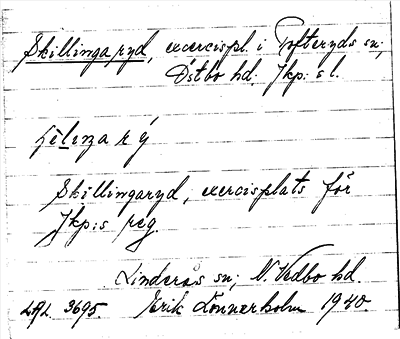 Skillingaryd, exercispl. i Tofteryds sn;
Östbo hd; Jkp:s l.
Skillingaryd, exercisplats för
Jkp:s reg.
Linderås sn; N. Vedbo hd.
LAL. 3695. Erik Lönnerholm 1940.